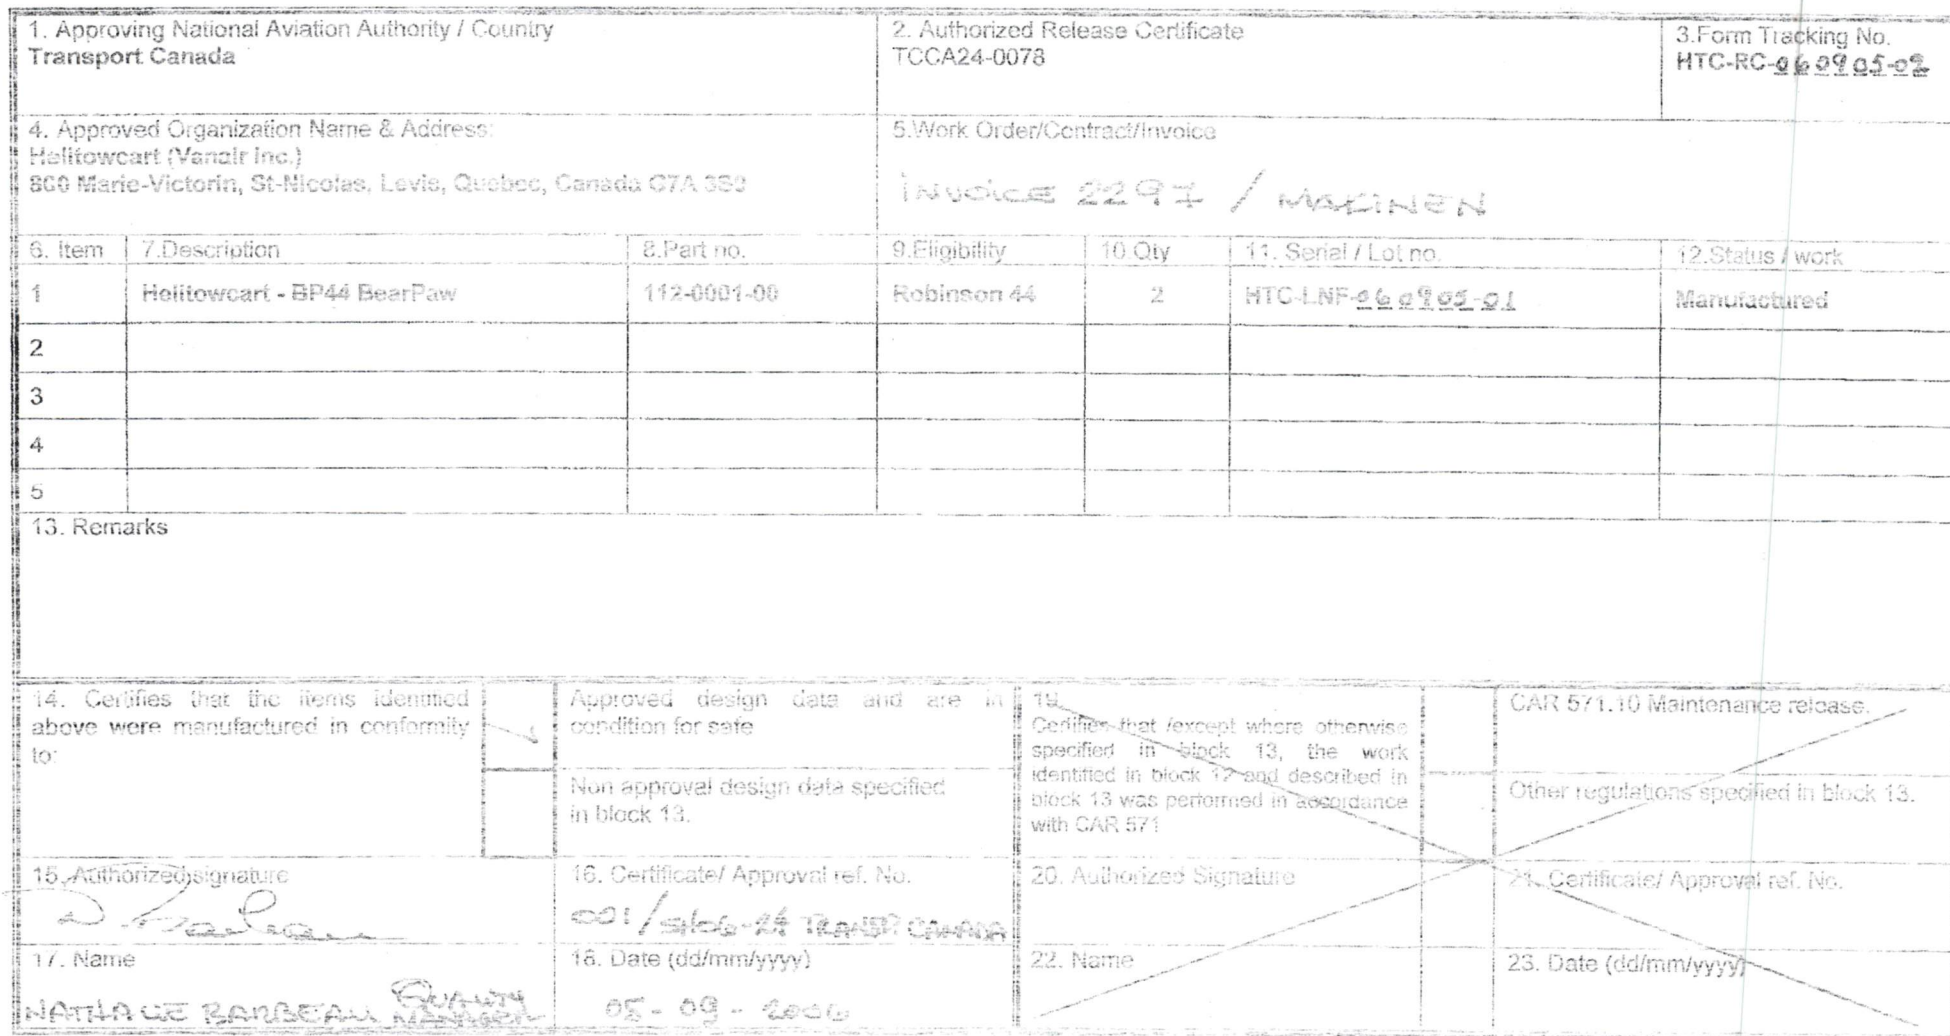 1. Approving National Aviation Authority / Country
Transport Canada
2. Authorized Release Certificate
TCCA24-0078
3.Form Tracking No.
HTC-RC-060905-02
4. Approved Organization Name & Address:
Helitowcart (Vanair Inc.)
800 Marie-Victorin, St-Nicolas, Levis, Quebec, Canada G7A 3S9
5.Work Order/Contract/Invoice
INVOICE 2297 / MAKINEN
6. Item
7.Description
8.Part no.
9.Eligibility
10.Qty
11. Serial / Lot no.
12.Status / work
1
Helitowcart - BP44 BearPaw
112-0001-00
Robinson 44
2
HTC-LNF-060905-01
Manufactured
2
3
4
5
13. Remarks
14. Certifies that the items identified
above were manufactured in conformity
to:
Approved design data and are in
condition for safe
Non approval design data specified
in block 13.
19.
Certifies that /except where otherwise
specified in block 13, the work
identified in block 12 and described in
block 13 was performed in accordance
with CAR 571
CAR 571.10 Maintenance release.
Other regulations specified in block 13.
15. Authorized signature
16. Certificate/ Approval ref. No.
001/ TRANSP. CANADA
20. Authorized Signature
21. Certificate/ Approval ref. No.
17. Name
NATHALIE BARBEAU QUALITY
MANAGER
18. Date (dd/mm/yyyy)
05 - 09 - 2006
22. Name
23. Date (dd/mm/yyyy)